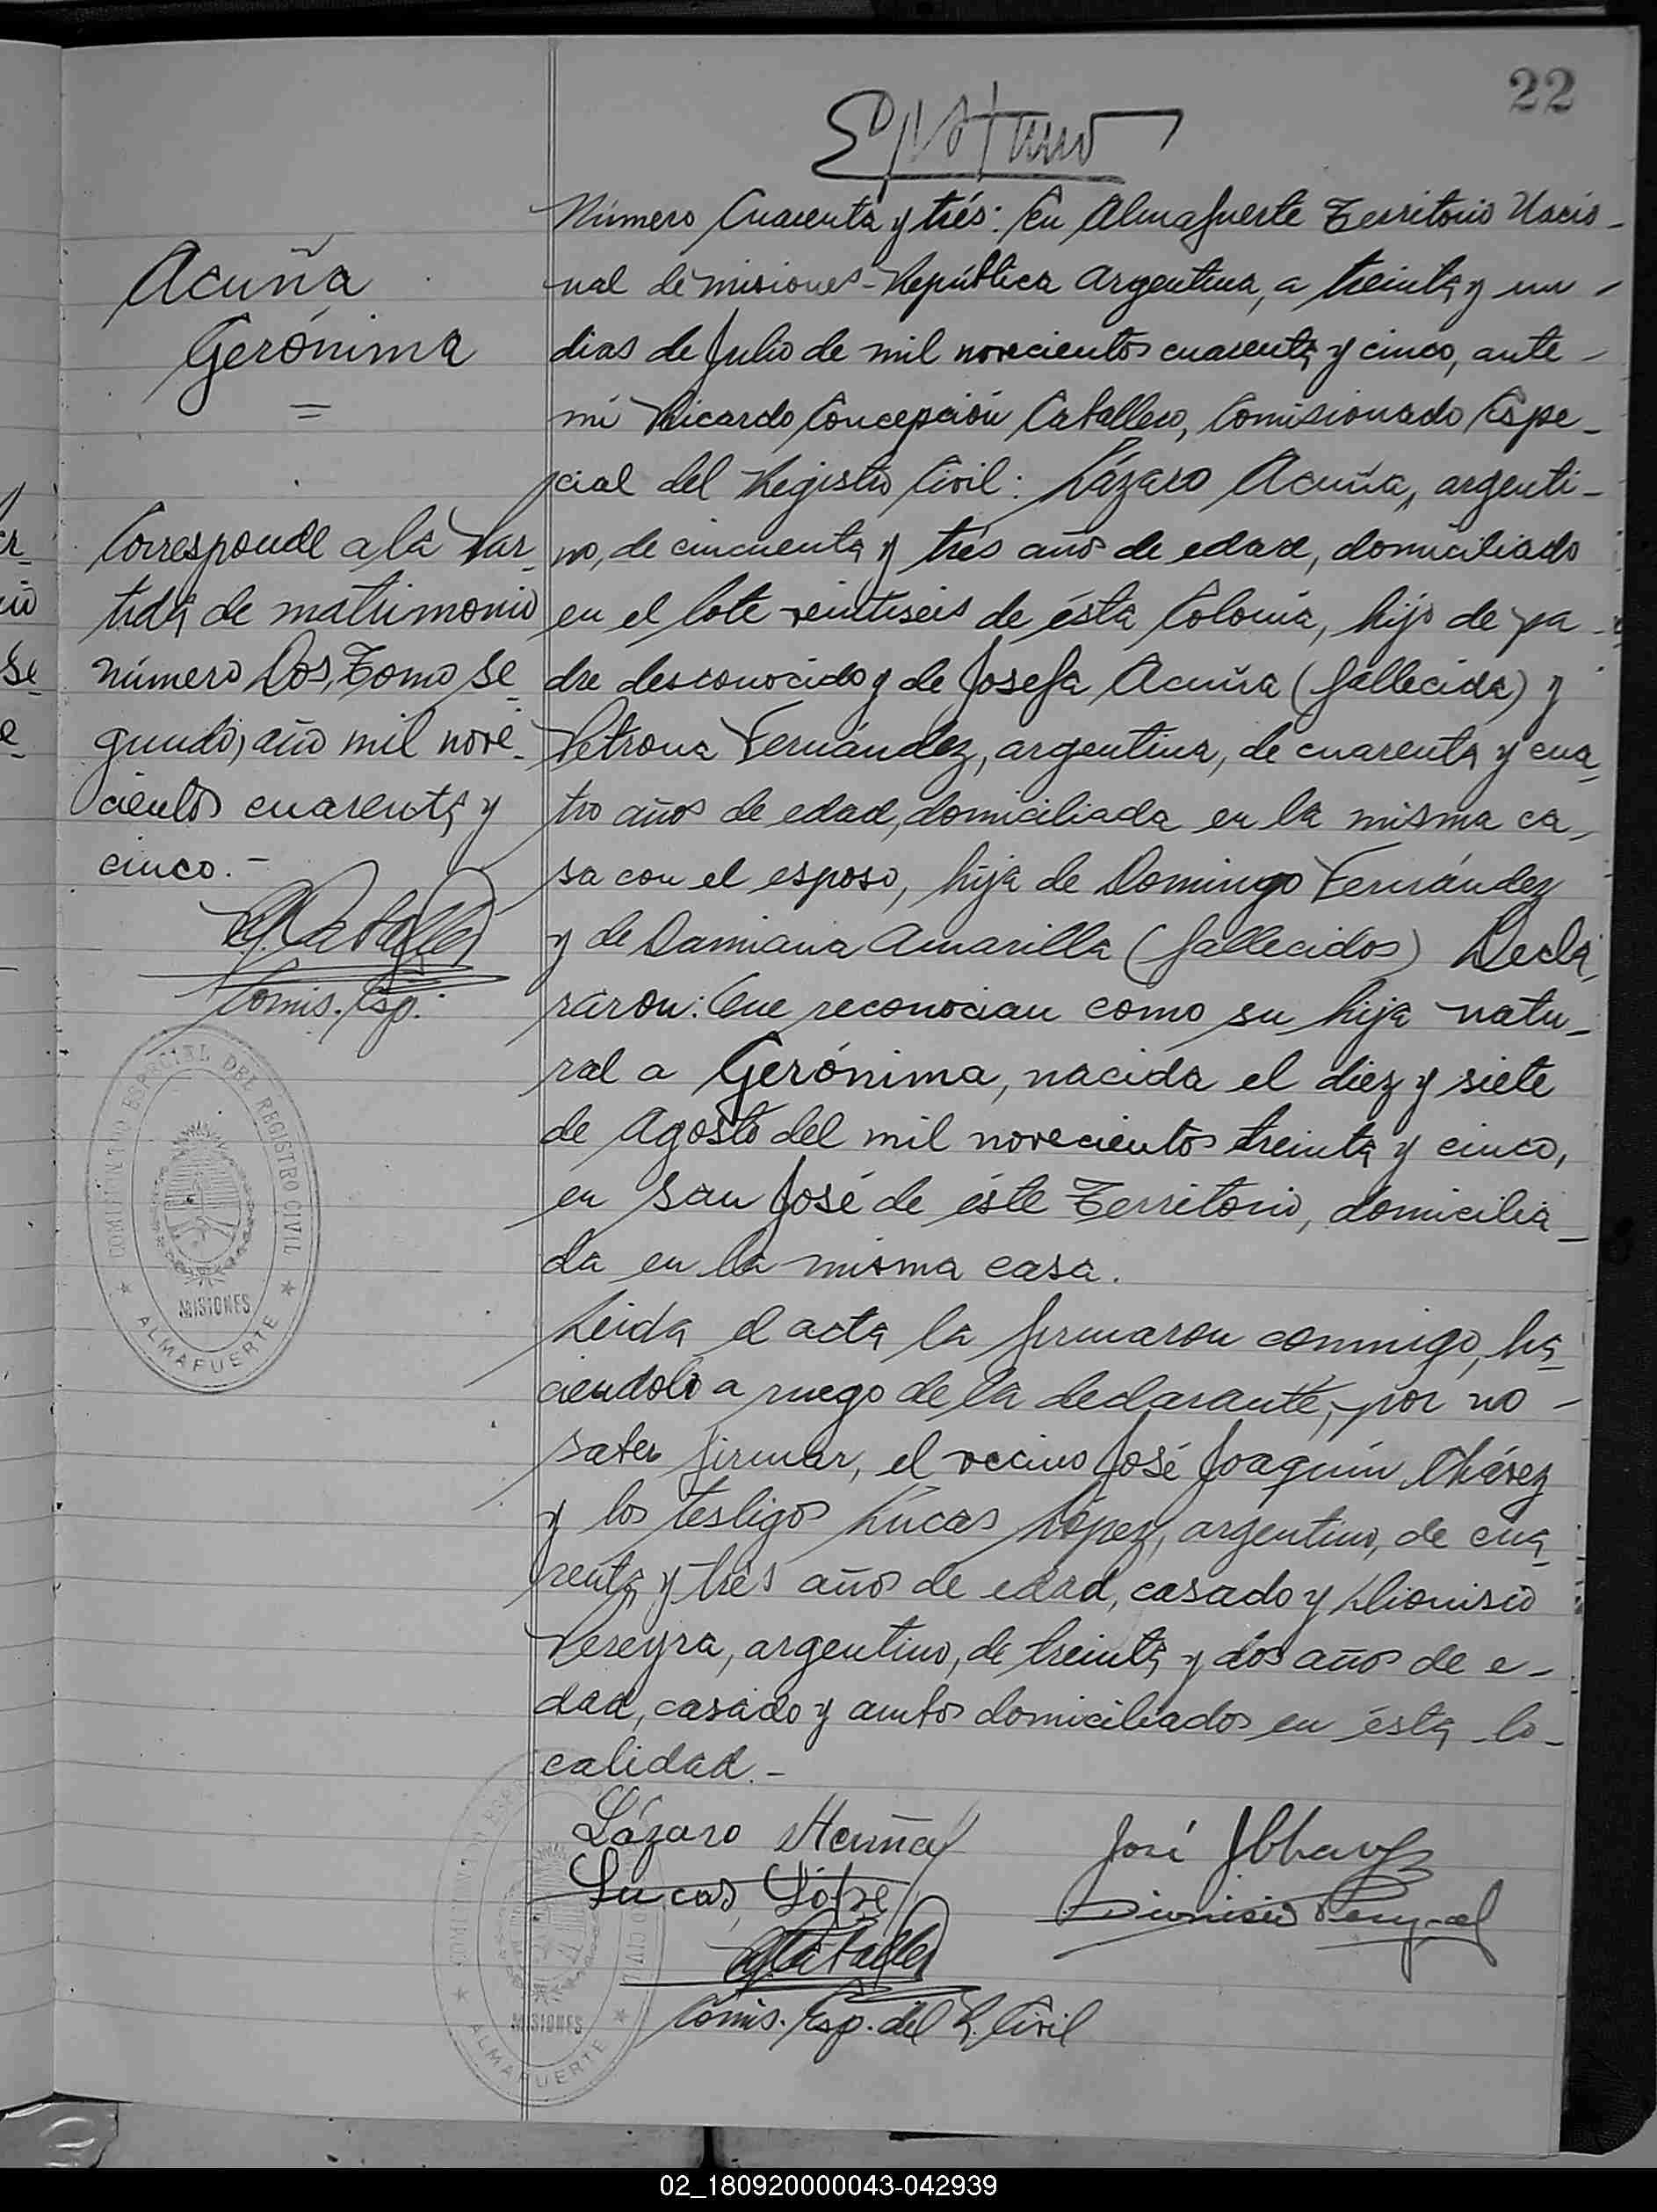 22
Acuña
Gerónima
=
Corresponde a la Par-
tida de matrimonio
número Dos, Tomo Se-
gundo, año mil nove-
cientos cuarenta y
cinco.-
Comis. Esp.
COMISIONADO ESPECIAL DEL REGISTRO CIVIL
MISIONES
★ ALMAFUERTE ★
Número Cuarenta y trés: En Almafuerte Territorio Nacio-
nal de Misiones-República Argentina, a treinta y un
dias de Julio de mil novecientos cuarenta y cinco, ante
mi Ricardo Concepción Caballero, Comisionado Espe-
cial del Registro Civil: Lázaro Acuña, argenti-
no, de cincuenta y trés años de edad, domiciliado
en el lote veintiseis de ésta Colonia, hijo de pa-
dre desconocido y de Josefa Acuña (fallecida) y
Petrona Fernández, argentina, de cuarenta y cua-
tro años de edad, domiciliada en la misma ca-
sa con el esposo, hija de Domingo Fernández
y de Damiana Amarilla (fallecidos) Decla-
raron: Que reconocian como su hija natu-
ral a Gerónima, nacida el diez y siete
de Agosto del mil novecientos treinta y cinco,
en San José de éste Territorio, domicilia-
da en la misma casa.
Leida el acta la firmaron conmigo, ha-
ciendolo a ruego de la declarante, por no
saber firmar, el vecino José Joaquín Chávez
y los testigos Lúcas López, argentino, de cua-
renta y trés años de edad, casado y Dionisio
Pereyra, argentino, de treinta y dos años de e-
dad, casado y ambos domiciliados en ésta lo-
calidad.-
Lázaro Acuña José J Chavez
Lucas Lópe Dionisio
Comis. Esp. del R. Civil
MISIONES
★ ALMAFUERTE ★
02_180920000043-042939